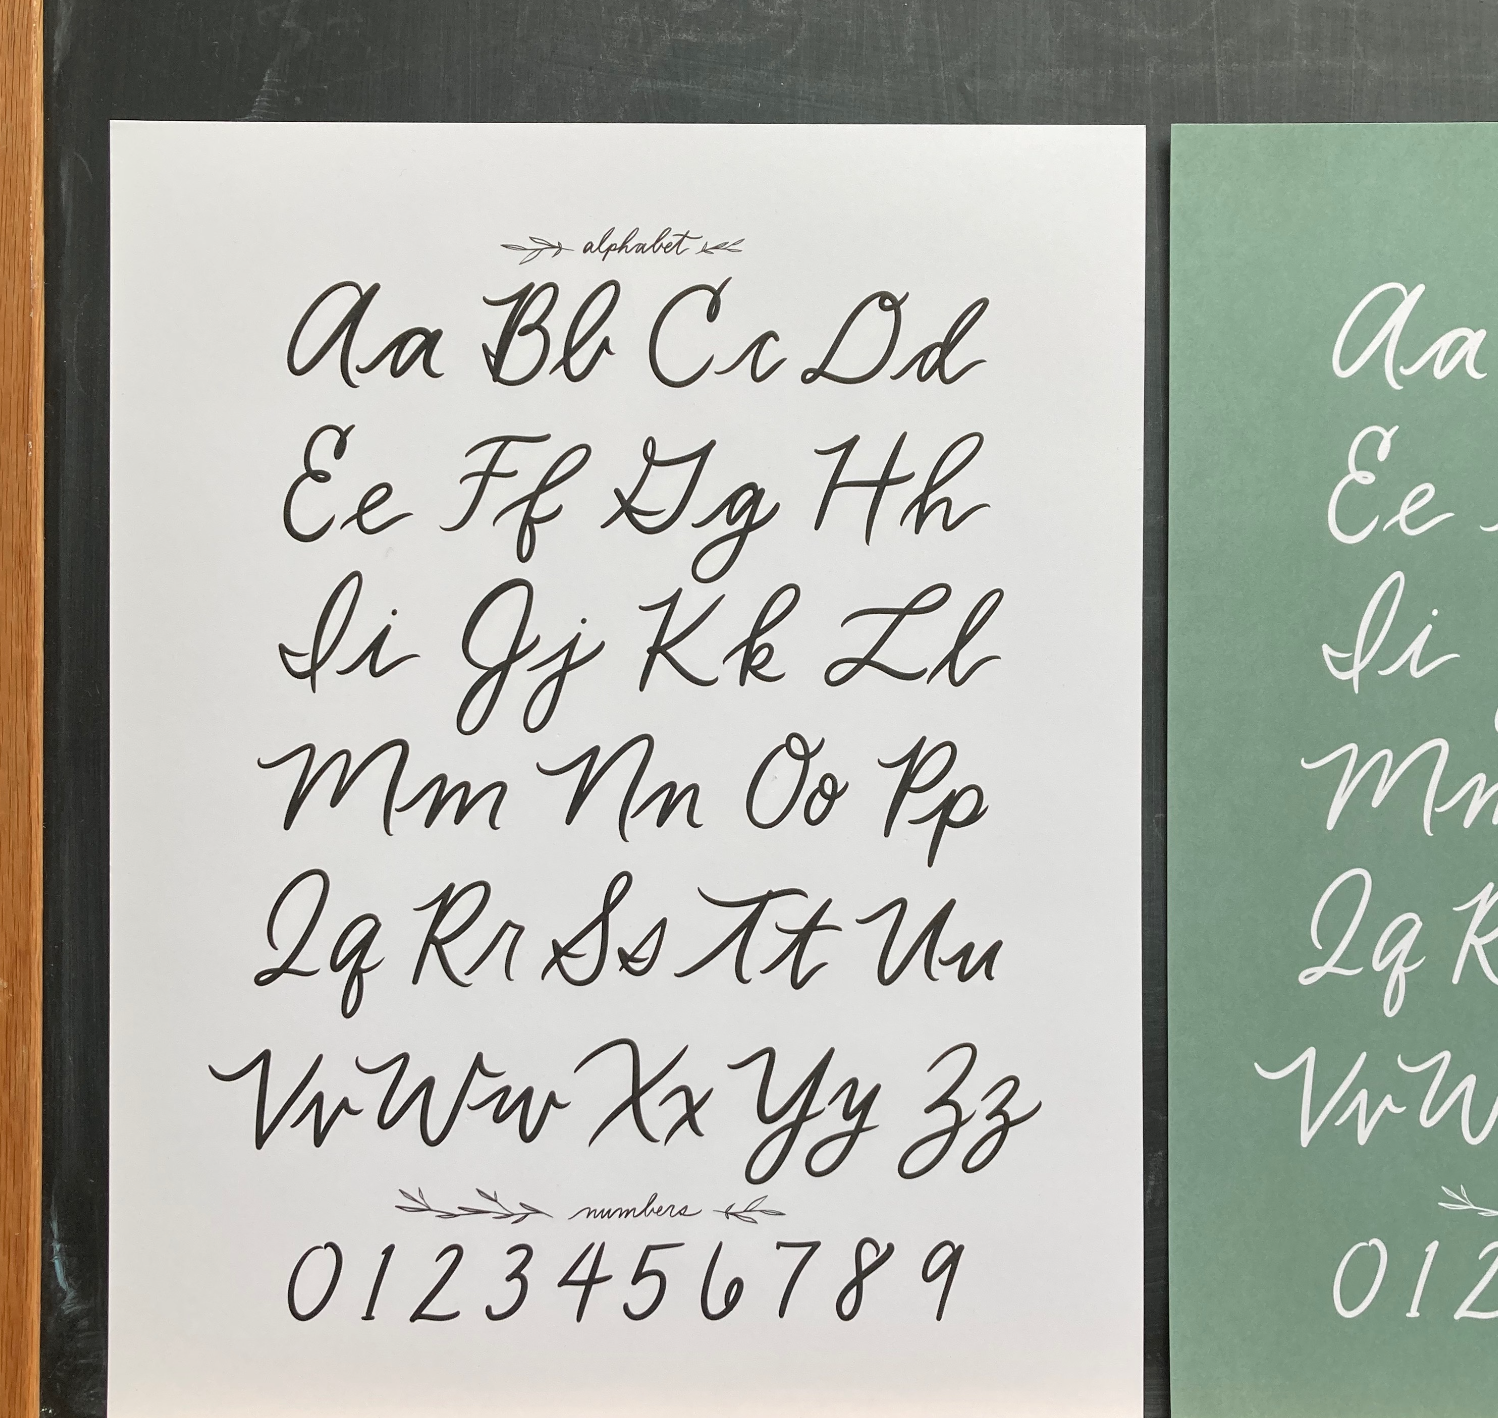 alphabet
Aa Bb Cc Dd
Ee Ff Gg Hh
Ii Jj Kk Ll
Mm Nn Oo Pp
Qq Rr Ss Tt Uu
Vv Ww Xx Yy Zz
numbers
0 1 2 3 4 5 6 7 8 9
Aa
Ee
Ii
Mm
Qq R
Vv W
0 1 2